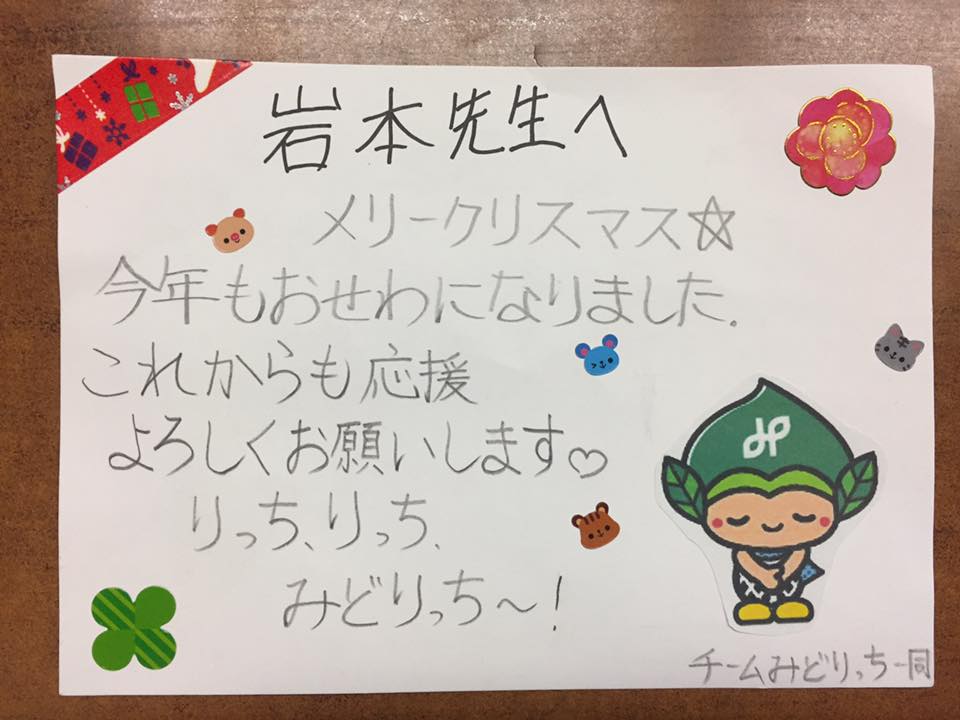 岩本先生へ
メリークリスマス☆
今年もおせわになりました.
これからも応援
よろしくお願いします♡
りっち、りっち、
みどりっち〜!
チームみどりっち一同